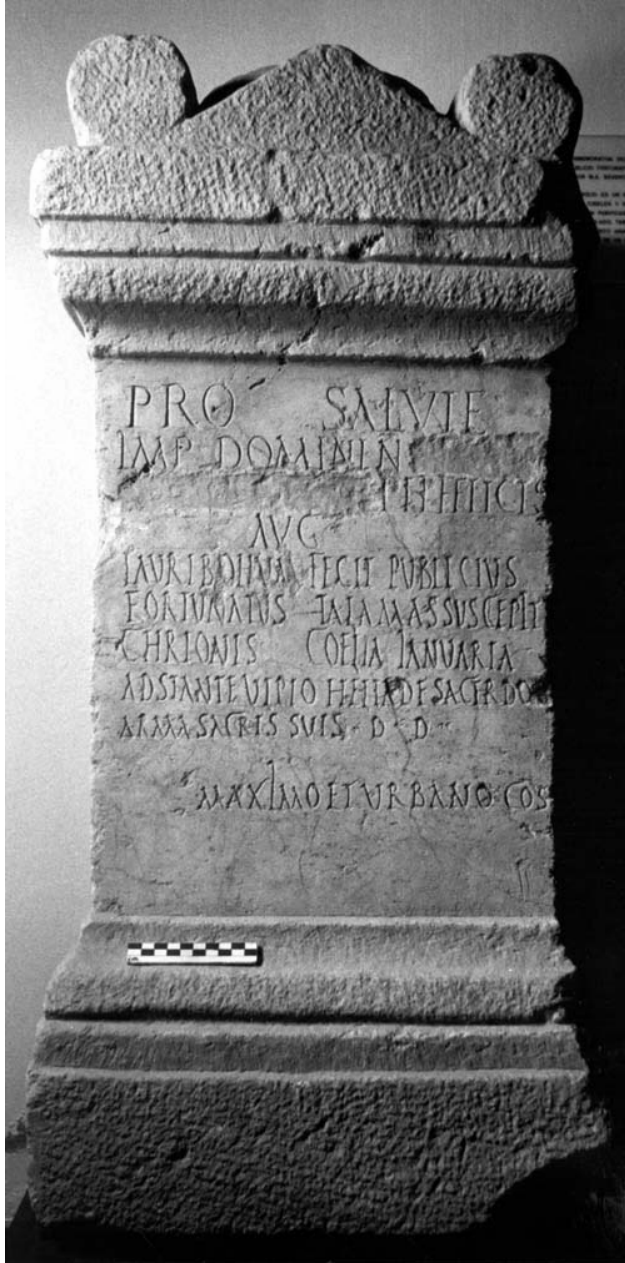 PRO SALVTE
IMP DOMINI N
PII FELICIS
AVG
TAVRIBOLIVM FECIT PVBLICIVS
FORTVNATVS TALAMAS SVSCEPIT
CHRIONIS COELIA IANVARIA
ADSTANTE VLPIO HELIADE SACERDO
ARAM SACRIS SVIS D D
MAXIMO ET VRBANO COS